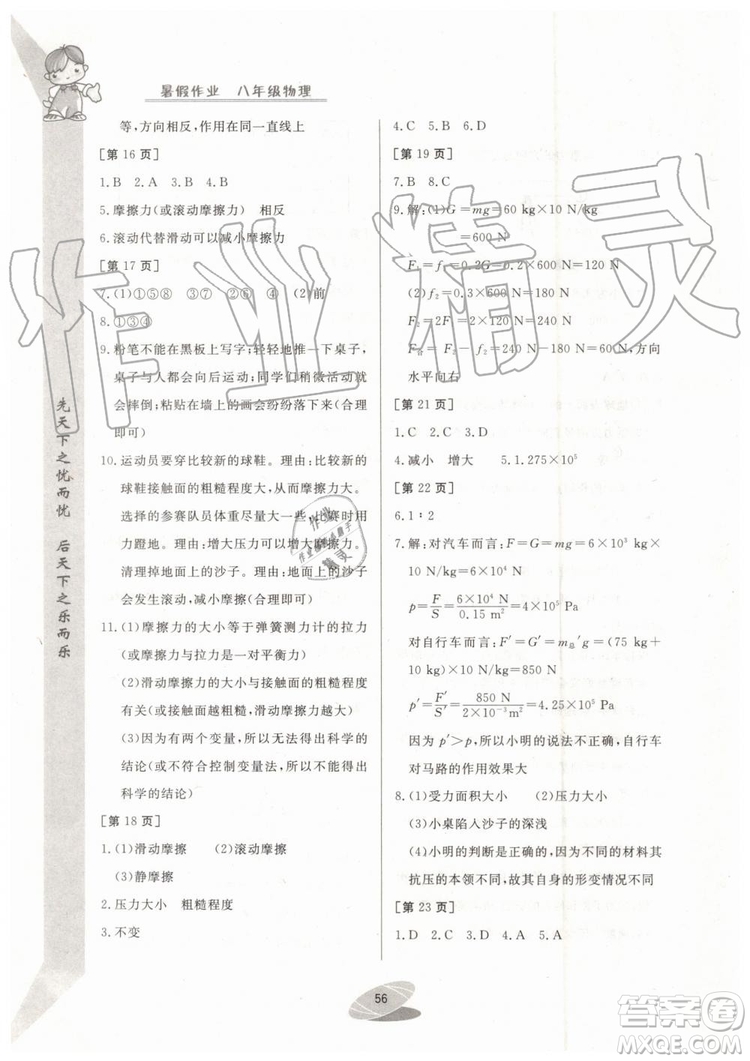 暑假作业 八年级物理
等,方向相反,作用在同一直线上
[第 16 页]
1.B 2.A 3.B 4.B
5.摩擦力(或滚动摩擦力) 相反
6.滚动代替滑动可以减小摩擦力
[第 17 页]
7.(1)①⑤⑧ ③⑦ ②④⑥ (2)前
8.①③④
9.粉笔不能在黑板上写字;轻轻地推一下桌子,
桌子与人都会向后运动;同学们稍微活动一下
就会摔倒;粘贴在墙上的画会纷纷落下(合理
即可)
10.运动员要穿比较新的球鞋。理由:比较新的
球鞋接触面的粗糙程度大,摩擦力大。
选择的参赛队员体重大一些,比赛时用
力蹬地。理由:增大压力可以增大摩擦力。
清理掉地面上的沙子。理由:地面上的沙子
会发生滚动,减小摩擦(合理即可)
11.(1)摩擦力的大小等于弹簧测力计的拉力
(或摩擦力与拉力是一对平衡力)
(2)滑动摩擦力的大小与接触面的粗糙程度
有关(或接触面越粗糙,滑动摩擦力越大)
(3)不可以。因为有两个变量,所以无法得出科学的
结论(或不符合控制变量法,所以不能得出
科学的结论)
[第 18 页]
1.(1)滑动摩擦 (2)滚动摩擦
(3)静摩擦
2.压力大小 粗糙程度
3.不变
4.C 5.B 6.D
[第 19 页]
7.B 8.C
9.解:(1)G=mg=60 kg×10 N/kg
=600 N
F=f₁=0.2G=0.2×600 N=120 N
(2)f₂=0.3×600 N=180 N
F₂=2F=2×120 N=240 N
F合=F₂-f₂=240 N-180 N=60 N,方向
水平向右
[第 21 页]
1.C 2.D 3.C
4.减小 增大 5.1.275×10⁵
[第 22 页]
6.1∶2
7.解:对汽车而言:F=G=mg=6×10³ kg×
10 N/kg=6×10⁴ N
p=F/S=6×10⁴ N/0.15 m²=4×10⁵ Pa
对自行车而言:F′=G′=m总′g=(75 kg+
10 kg)×10 N/kg=850 N
p′=F′/S′=850 N/2×10⁻³ m²=4.25×10⁵ Pa
因为 p′>p,所以小明的说法不正确,自行车
对马路的作用效果大
8.(1)受力面积大小 (2)压力大小
(3)小桌陷入沙子的深浅
(4)小明的判断是正确的,因为不同的材料其
抗压的本领不同,故其自身的形变情况不同
[第 23 页]
1.D 2.C 3.D 4.A 5.A
先天下之忧而忧 后天下之乐而乐
56
作业精灵
答案圈
MXQE.COM